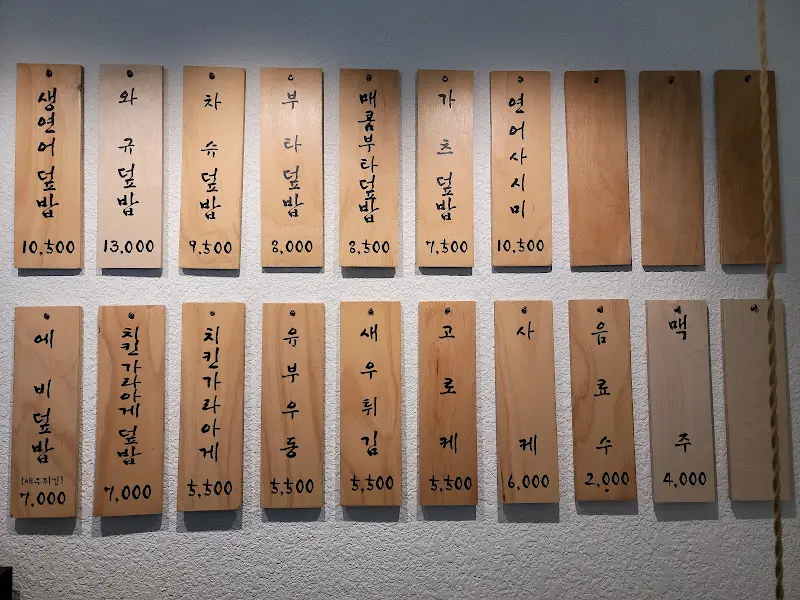 생연어덮밥
10,500
와규덮밥
13,000
차슈덮밥
9,500
부타덮밥
8,000
매콤부타덮밥
8,500
가츠덮밥
7,500
연어사시미
10,500
에비덮밥
(새우튀김)
7,000
치킨가라아게덮밥
7,000
치킨가라아게
5,500
유부우동
5,500
새우튀김
5,500
고로케
5,500
사케
6,000
음료수
2,000
맥주
4,000